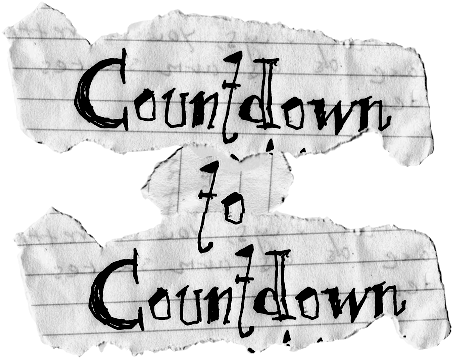 Countdown
to
Countdown